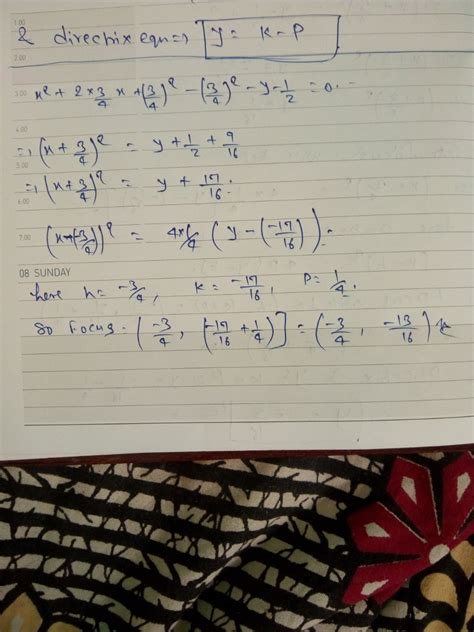 1.00
& directrix equn => y = K - P
2.00
3.00 x² + 2×3/4 x + (3/4)² - (3/4)² - y - 1/2 = 0.
4.00
=> (x + 3/4)² = y + 1/2 + 9/16
5.00
=> (x + 3/4)² = y + 17/16.
6.00
7.00 (x - (-3/4))² = 4×1/4 (y - (-17/16)).
08 SUNDAY
here h = -3/4, K = -17/16, P = 1/4.
so Focus. (-3/4, (-17/16 + 1/4)] = (-3/4, -13/16)